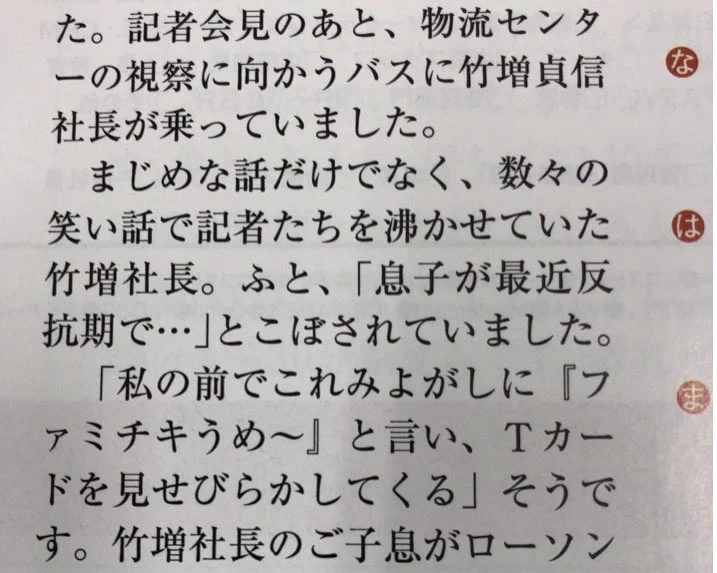 た。記者会見のあと、物流センタ
ーの視察に向かうバスに竹増貞信
社長が乗っていました。
まじめな話だけでなく、数々の
笑い話で記者たちを沸かせていた
竹増社長。ふと、「息子が最近反
抗期で…」とこぼされていました。
「私の前でこれみよがしに『フ
ァミチキうめ〜』と言い、Tカー
ドを見せびらかしてくる」そうで
す。竹増社長のご子息がローソン
な
は
ま